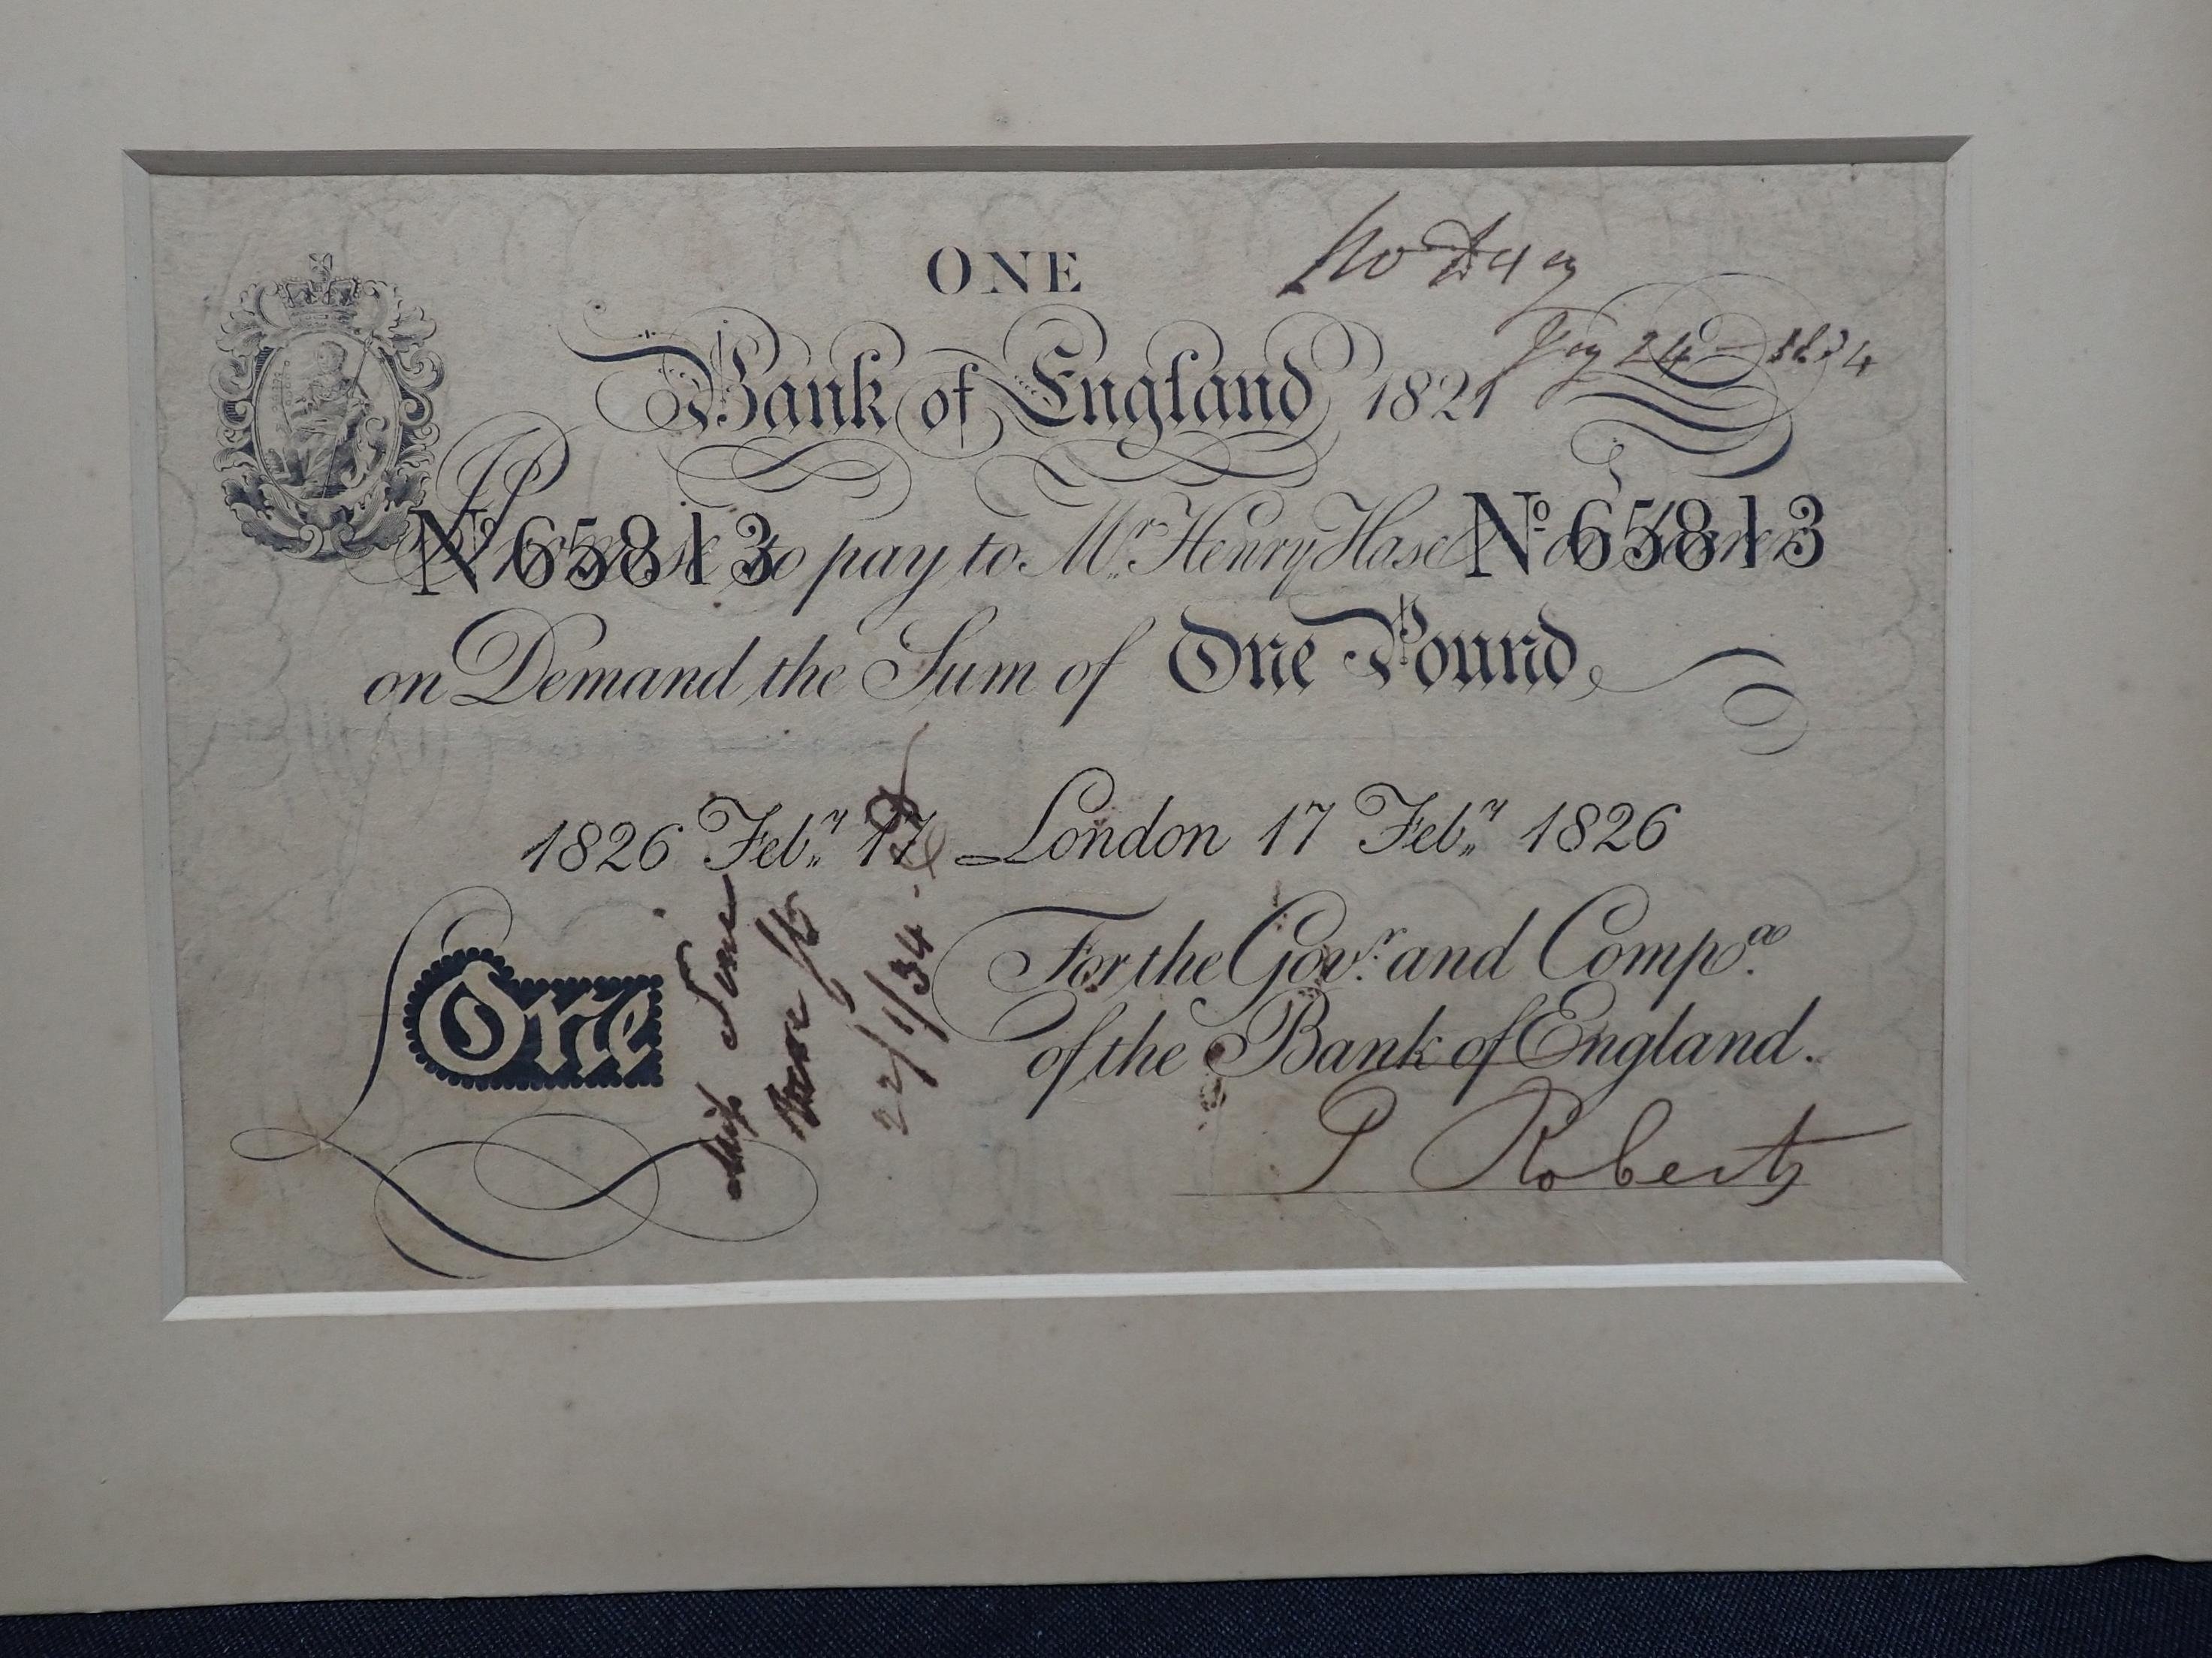 ONE
Bank of England 1821
Nº 65813 I Promise to pay to Mr. Henry Hase Nº 65813
on Demand the Sum of One Pound
1826 Feby. 17 London 17 Feby. 1826
For the Govr. and Compa.
of the Bank of England.
One
22/1/34
P Roberts